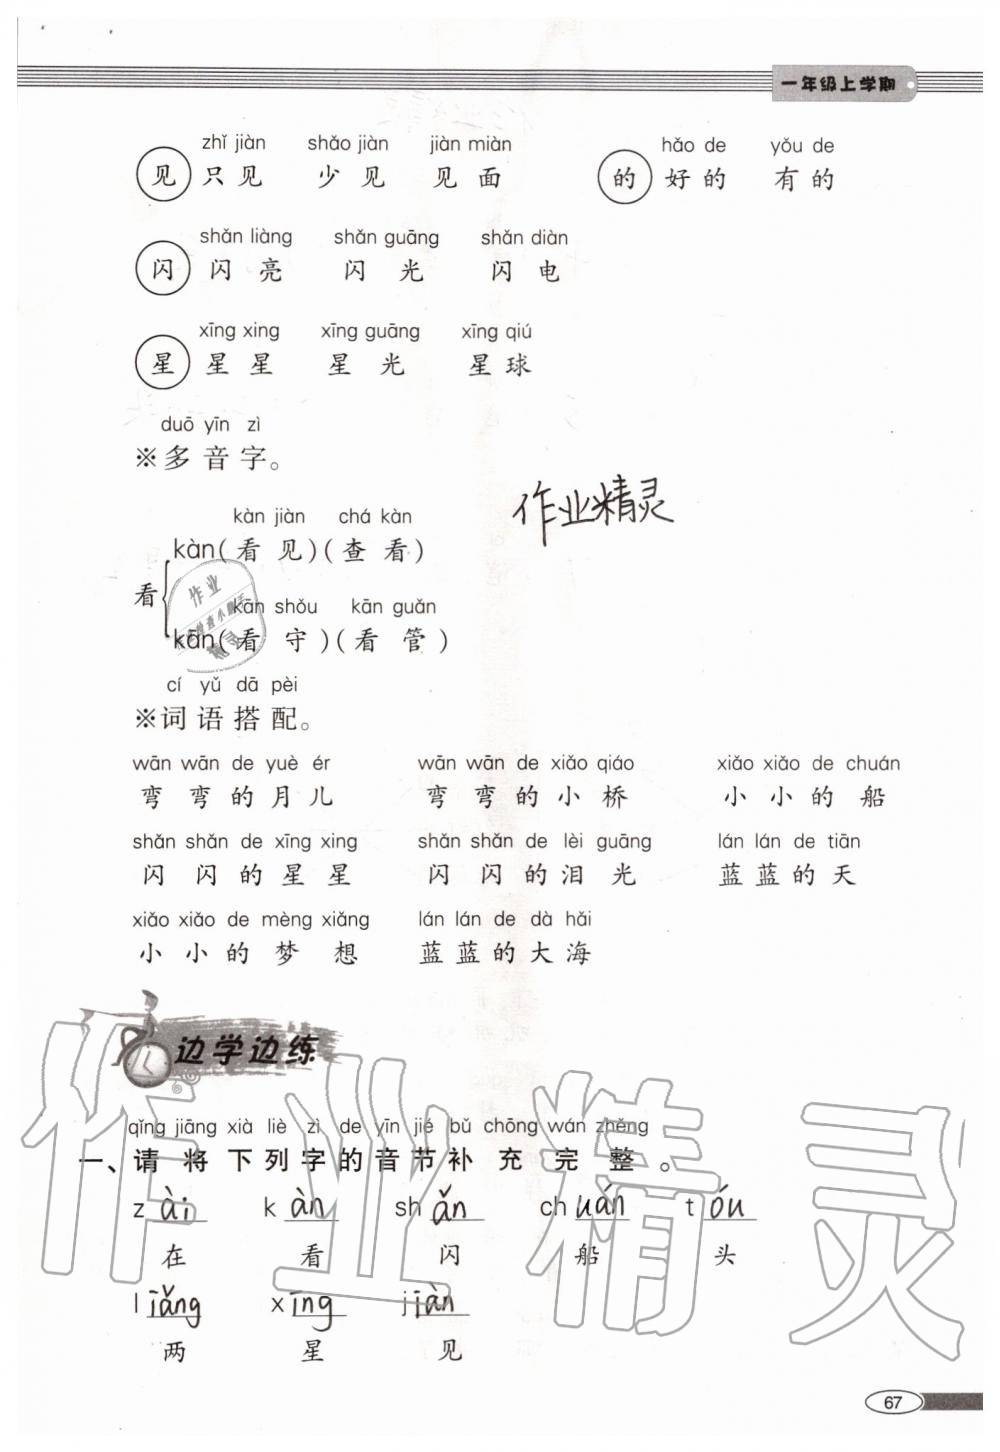 一年级上学期
zhǐ jiàn shǎo jiàn jiàn miàn hǎo de yǒu de
见 只见 少见 见面 的 好的 有的
shǎn liàng shǎn guāng shǎn diàn
闪 闪亮 闪光 闪电
xīng xing xīng guāng xīng qiú
星 星星 星光 星球
duō yīn zì
※多音字。
作业精灵
kàn jiàn chá kàn
kàn(看见)(查看)
看
kān shǒu kān guǎn
kān(看守)(看管)
作业
精灵
cí yǔ dā pèi
※词语搭配。
wān wān de yuè ér wān wān de xiǎo qiáo xiǎo xiǎo de chuán
弯弯的月儿 弯弯的小桥 小小的船
shǎn shǎn de xīng xing shǎn shǎn de lèi guāng lán lán de tiān
闪闪的星星 闪闪的泪光 蓝蓝的天
xiǎo xiǎo de mèng xiǎng lán lán de dà hǎi
小小的梦想 蓝蓝的大海
边学边练
qǐng jiāng xià liè zì de yīn jié bǔ chōng wán zhěng
一、请将下列字的音节补充完整。
z ài k àn sh ǎn ch uán t óu
在 看 闪 船 头
l iǎng x īng j iàn
两 星 见
作业精灵
67